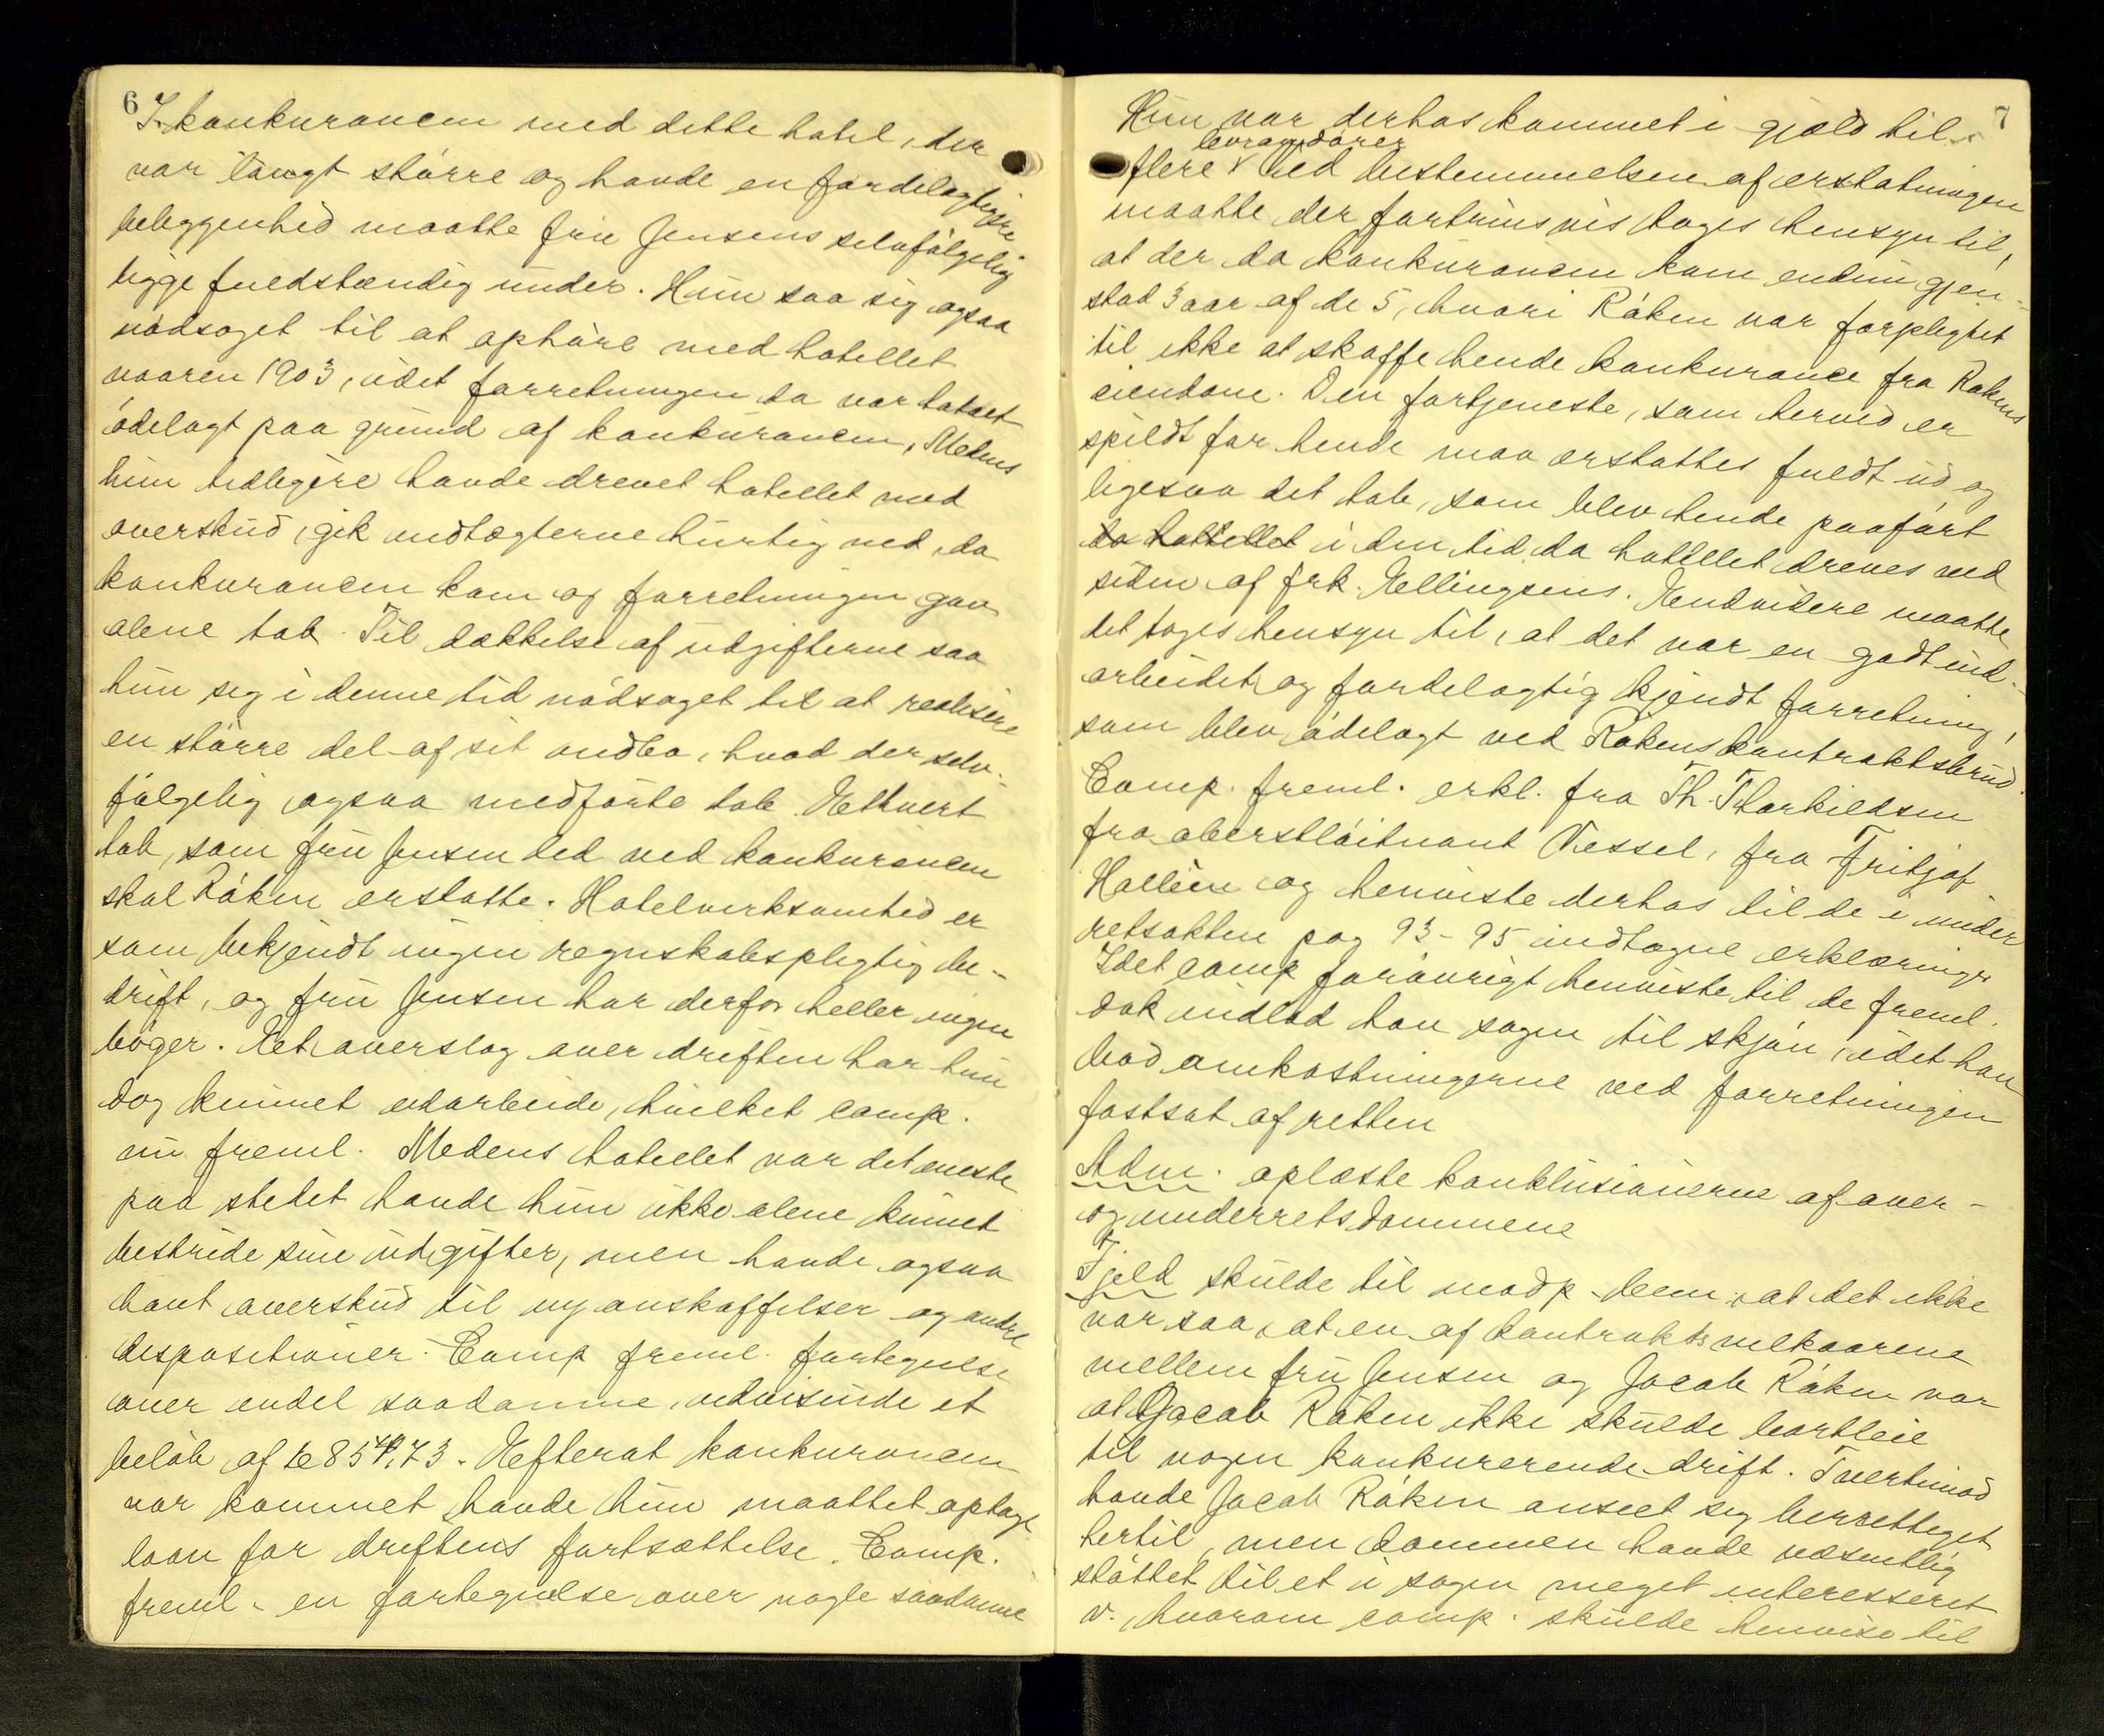 6
I konkurancen med dette hotel, der
var langt större og havde en fordelagtigere
beliggenhed maatte fru Jensens selvfölgelig
ligge fuldstændig under. Hun saa sig ogsaa
nödsaget til at ophöre med hotellet
vaaren 1903, idet forretningen da var totalt
ödelagt paa grund af konkurancen, Mens
hun tidligere havde drevet hotellet med
overskud, gik indtægterne hurtig ned, da
konkurancen kom og forretningen gav
alene tab. Til dækkelse af udgifterne saa
hun sig i denne tid nödsaget til at realisere
en större del af sit indbo, hvad der selv-
fölgelig ogsaa medförte tab. Ethvert
tab, som fru Jensen led ved konkurancen
skal Röken erstatte. Hotelvirksomhed er
som bekjendt ingen regnskabspligtig be-
drift, og fru Jensen har derfor heller ingen
böger. Et overslag over driften har hun
dog kunnet udarbeide, hvilket comp.
nu freml. Medens hotellet var det eneste
paa stedet havde hun ikke alene kunnet
bestride sine udgifter, men havde ogsaa
havt overskud til nyanskaffelser og andre
dispositioner. Comp freml. fortegnelse
over endel saadanne, udvisende et
belöb af kr 854,73. Efterat konkurancen
var kommet havde hun maattet optage
laan for driftens fortsættelse. Comp.
freml. en fortegnelse over nogle saadanne
7
Hun var derhos kommet i gjæld til
leverandörer
flere v Ved bestemmelsen af erstatningen
maatte der fortrinsvis tages hensyn til,
at der da konkurancen kom endnu gjen-
stod 3 aar af de 5, hvori Röken var forpligtet
til ikke at skaffe hende konkurance fra Rökens
eiendom. Den fortjeneste, som herved er
spildt for hende maa erstattes fuldt ud og
ligesaa det tab, som blev hende paafört
da hottellet i den tid da hotellet dreves ved
siden af frk. Ellingsens. Endvidere maatte
det tages hensyn til, at det var en godt ind-
arbeidet og fordelagtig kjendt forretning,
som blev ödelagt ved Rökens kontraktsbrud.
Comp. freml. erkl. fra Th. Thorkildsen
fra oberstlöitnant Vessel, fra Fritjof
Hallèn og henviste derhos til de i under
retsakten pag 93-95 indtagne erklæringer
Idet comp foröurigt henviste til de freml.
dok indlod han sagen til skjön, idet han
bad omkostningerne ved forretningen
fastsat af retten
Adm. oplæste konklusionerne af over-
og underretsdommene
Fjeld skulde til modp. bem. at det ikke
var saa, at en af kontraktsvilkaarene
mellem fru Jensen og Jacob Röken var
at Jacob Röken ikke skulde bortleie
til nogen konkurerende drift. Tvertimod
havde Jacob Röken anseet sig berettiget
hertil, men dommen havde væsentlig
stöttet til et i sagen meget interesseret
v. hvorom comp. skulde henvise til